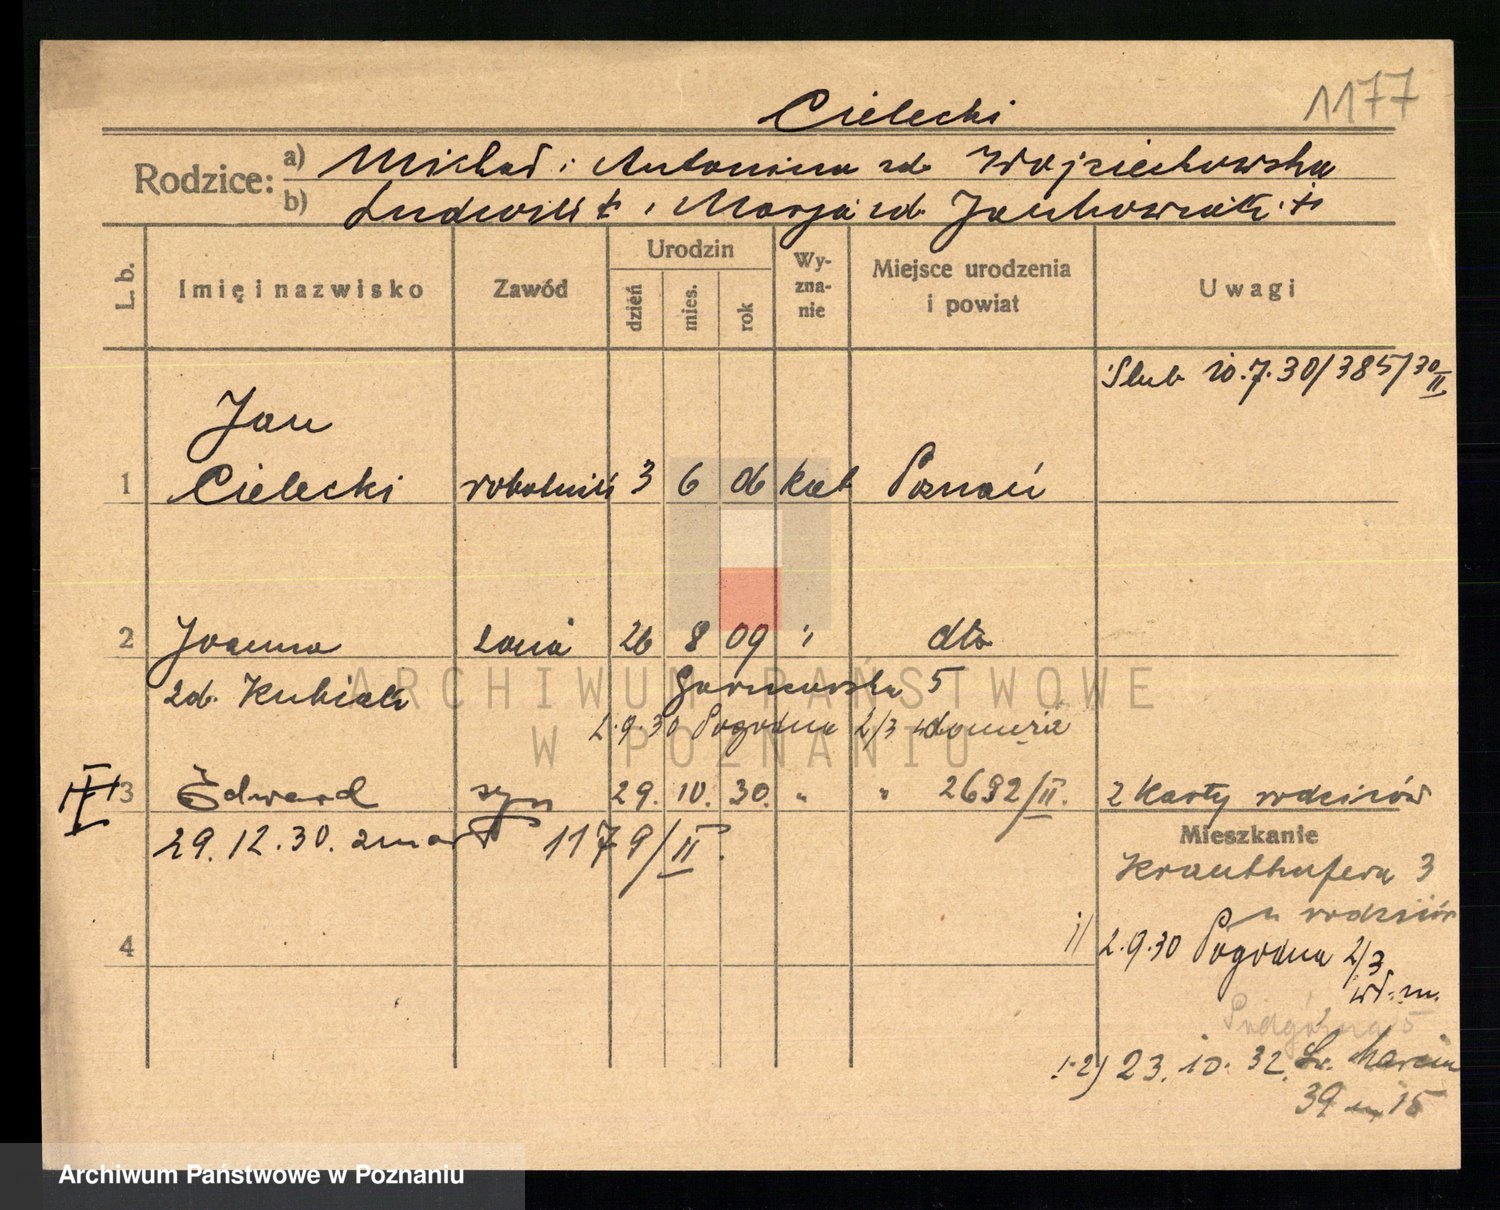 1177
Cielecki
Rodzice: a) Michał i Antonina zd. Wojciechowska
b) Ludwik † i Marja zd. Jankowiak †
L. b. Imię i nazwisko Zawód Urodzin dzień mies. rok Wy-zna-nie Miejsce urodzenia i powiat Uwagi
Ślub 10.7.30/385/30 II
Jan
1 Cielecki robotnik 3 6 06 kat Poznań
2 Joanna żona 26 8 09 " dto
zd. Kubiak 5
2.9.30 Pogodna 2/3
III 3 Edward syn 29. 10. 30. " " 2692/II. z karty rodziców
29.12.30. zmarł 1179/II.
Mieszkanie
Krauthofera 3
u rodziców
4
1) 2.9.30 Pogodna 2/3
wł. m.
Podgórna 5
1-2) 23.10.32. Św. Marcin
39 m 15
ARCHIWUM PAŃSTWOWE
W POZNANIU
Archiwum Państwowe w Poznaniu